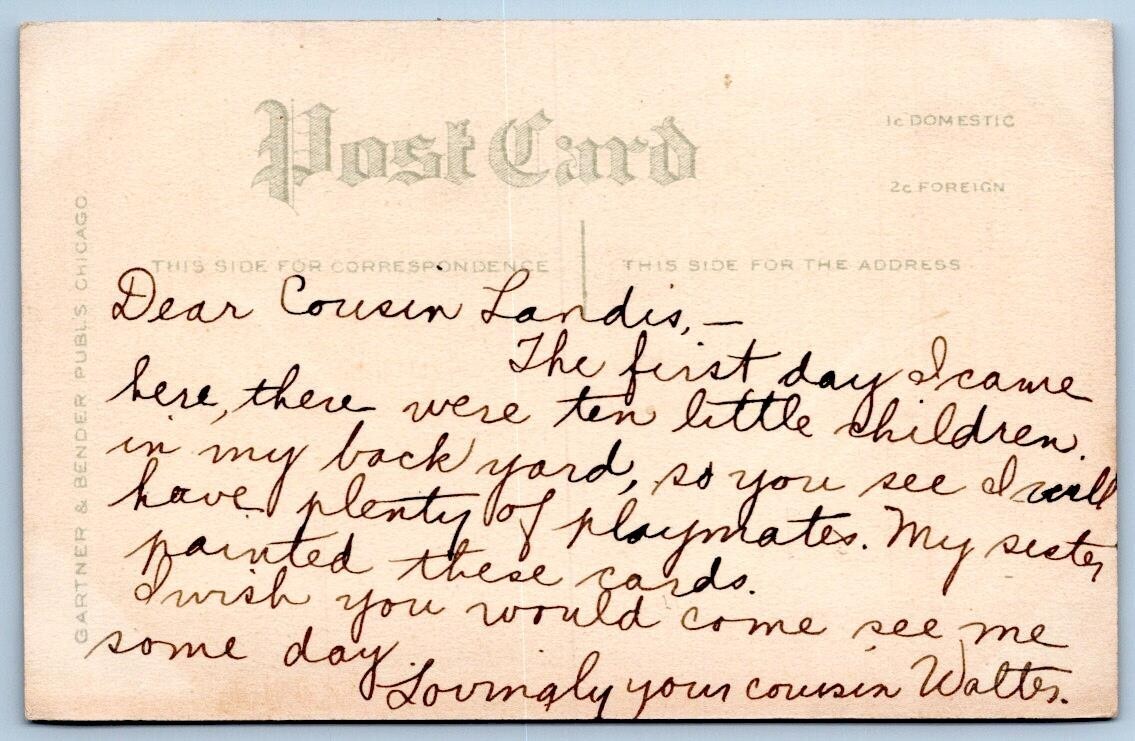 Post Card
1c DOMESTIC
2c FOREIGN
GARTNER & BENDER PUBLS. CHICAGO
THIS SIDE FOR CORRESPONDENCE
THIS SIDE FOR THE ADDRESS
Dear Cousin Landis,—
The first day I came
here, there were ten little children
in my back yard, so you see I will
have plenty of playmates. My sister
painted these cards.
I wish you would come see me
some day.
Lovingly your cousin Walter.